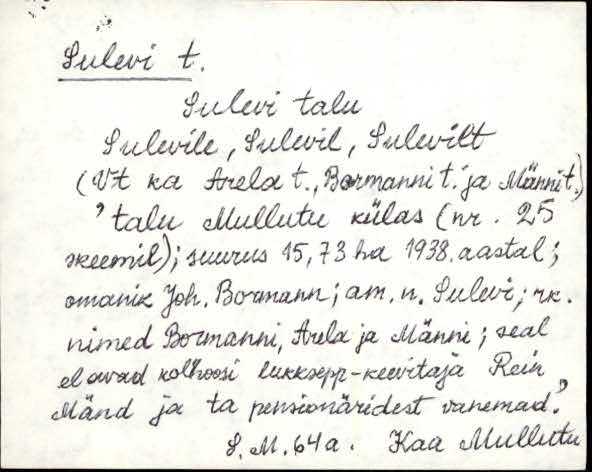 Sulevi t.
Sulevi talu
Sulevile, Sulevil, Sulevilt
(Vt ka Arela t., Bormanni t. ja Männi t.)
’talu Mullutu külas (nr. 25
skeemil); suurus 15,73 ha 1938. aastal;
omanik Joh. Bormann; am. n. Sulevi; rk.
nimed Bormanni, Arela ja Männi; seal
elavad kolhoosi lukksepp-keevitaja Rein
Mänd ja ta pensionäridest vanemad.’
S. M. 64 a. Kaa Mullutu